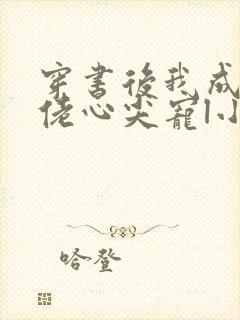 穿書後我成
佬心尖寵
哈登